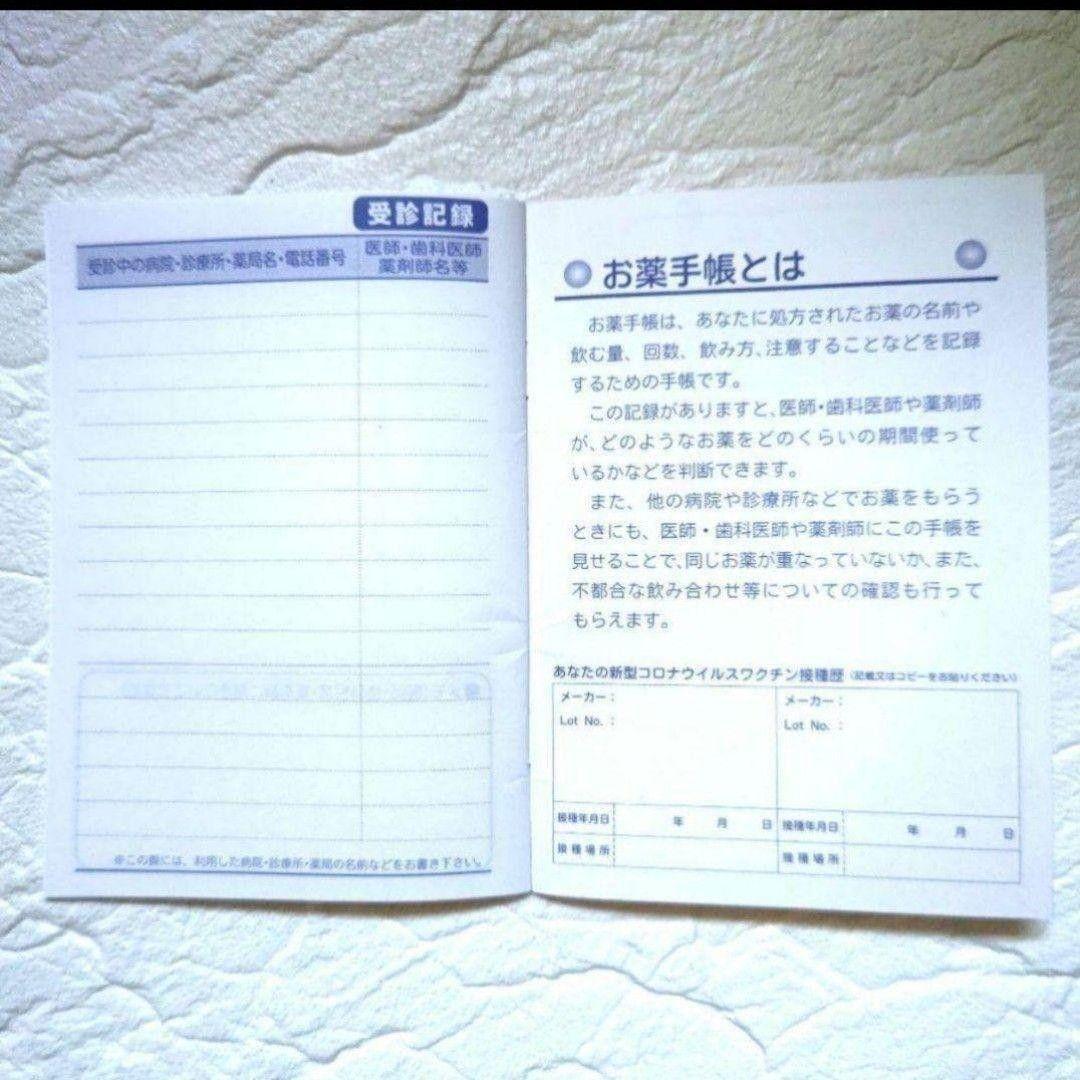 受診記録
受診中の病院・診療所・薬局名・電話番号
医師・歯科医師
薬剤師名等
※この欄には、利用した病院・診療所・薬局の名前などをお書き下さい。
お薬手帳とは
お薬手帳は、あなたに処方されたお薬の名前や
飲む量、回数、飲み方、注意することなどを記録
するための手帳です。
この記録がありますと、医師・歯科医師や薬剤師
が、どのようなお薬をどのくらいの期間使って
いるかなどを判断できます。
また、他の病院や診療所などでお薬をもらう
ときにも、医師・歯科医師や薬剤師にこの手帳を
見せることで、同じお薬が重なっていないか、また、
不都合な飲み合わせ等についての確認も行って
もらえます。
あなたの新型コロナウイルスワクチン接種歴（記載又はコピーをお貼りください）
メーカー：
Lot No.：
接種年月日 年 月 日
接種場所
メーカー：
Lot No.：
接種年月日 年 月 日
接種場所